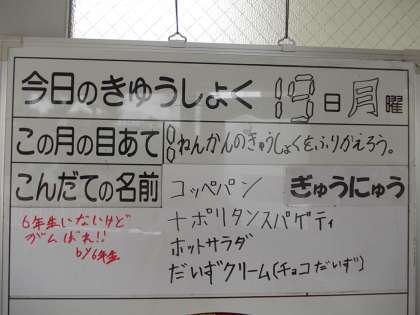 今日のきゅうしょく 19日月曜
この月の目あて 1ねんかんのきゅうしょくをふりかえろう。
こんだての名前 コッペパン ぎゅうにゅう
ナポリタンスパゲティ
ホットサラダ
だいずクリーム(チョコだいず)
6年生いないけど
がんばれ!!
by6年生